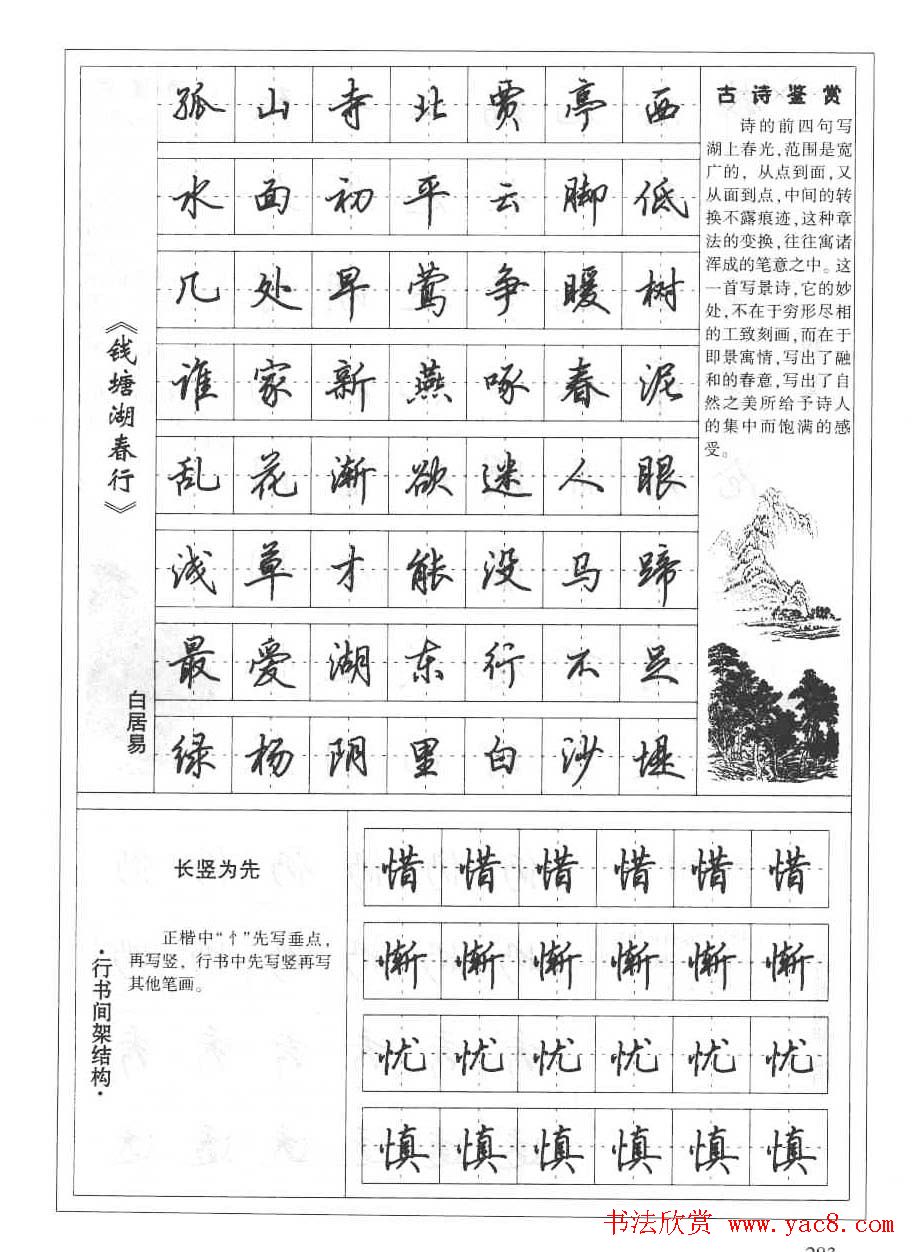 《钱塘湖春行》
白居易
孤山寺北贾亭西
水面初平云脚低
几处早莺争暖树
谁家新燕啄春泥
乱花渐欲迷人眼
浅草才能没马蹄
最爱湖东行不足
绿杨阴里白沙堤
古诗鉴赏
诗的前四句写
湖上春光,范围是宽
广的，从点到面,又
从面到点,中间的转
换不露痕迹,这种章
法的变换,往往寓诸
浑成的笔意之中。这
一首写景诗,它的妙
处,不在于穷形尽相
的工致刻画,而在于
即景寓情,写出了融
和的春意,写出了自
然之美所给予诗人
的集中而饱满的感
受。
·行书间架结构·
长竖为先
正楷中“忄”先写垂点，
再写竖，行书中先写竖再写
其他笔画。
惜惜惜惜惜惜
惭惭惭惭惭惭
忧忧忧忧忧忧
慎慎慎慎慎慎
书法欣赏 www.yac8.com